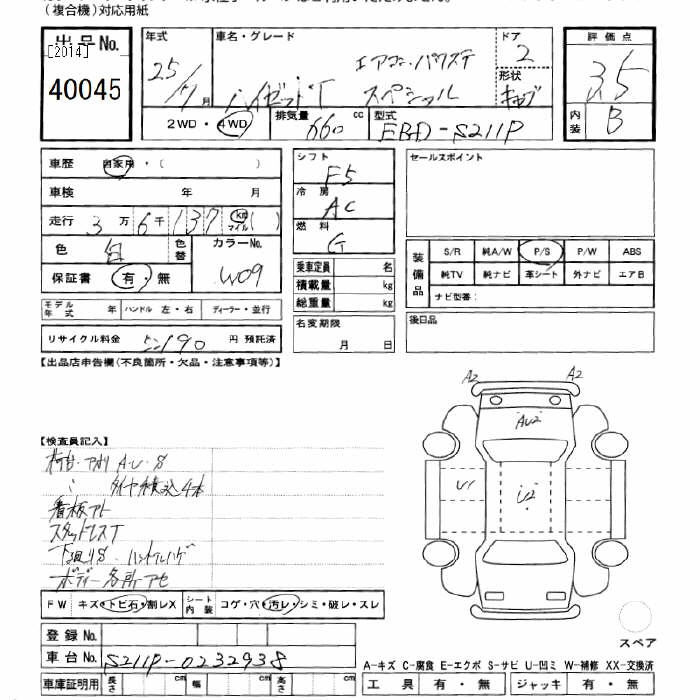 (複合機)対応用紙
出品No. [2014] 40045
年式 25/ 月
車名・グレード ハイゼットT エアコン・パワステ スペシャル
ドア 2
形状 キャブ
2WD・4WD
排気量 660 cc
型式 EBD-S211P
評価点 3.5
内装 B
車歴 自家用・( )
車検 年 月
走行 3万6千137 km マイル( )
色 白 色替 カラーNo. W09
保証書 有・無
モデル年式 年 ハンドル 左・右 ディーラー・並行
リサイクル料金 190 円 預託済
シフト F5
冷房 AC
燃料 G
乗車定員 名
積載量 kg
総重量 kg
名変期限 月 日
セールスポイント
装備品 S/R 純A/W P/S P/W ABS
純TV 純ナビ 革シート 外ナビ エアB
ナビ型番:
後日品
【出品店申告欄(不良箇所・欠品・注意事項等)】
A2 A2
AU2
U1 U2
【検査員記入】
荷台・アオリ A・U・S
〃 タイヤ積込4本
看板アト
スタッドレスT
下廻りS・ハンドルハゲ
ボディー各所アセ
FW キズ・トビ石・割レX シート内装 コゲ・穴・汚レ・シミ・破レ・スレ
登録No.
車台No. S211P-0232938
車庫証明用 長さ cm 幅 cm 高さ cm
スペア
A-キズ C-腐食 E-エクボ S-サビ U-凹ミ W-補修 XX-交換済
工具 有・無 ジャッキ 有・無